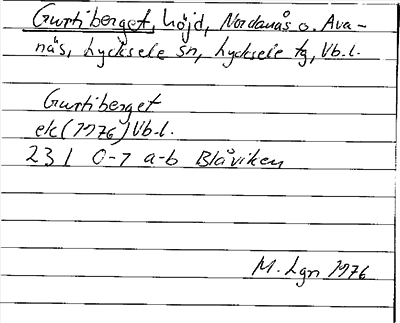 Gurtiberget, höjd, Nordanås o. Ava-
näs, Lycksele sn, Lycksele tg, Vb.l.
Gurtiberget
ek (1976) Vb.l.
23 I 0-7 a-b Blåviken
M. Lgn 1976